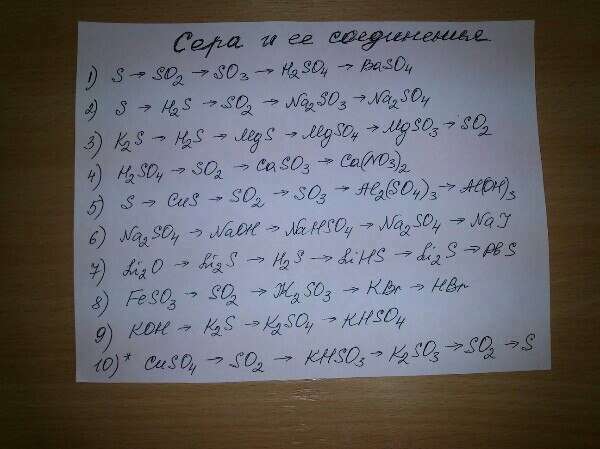 Сера и ее соединения
1) S → SO₂ → SO₃ → H₂SO₄ → BaSO₄
2) S → H₂S → SO₂ → Na₂SO₃ → Na₂SO₄
3) K₂S → H₂S → MgS → MgSO₄ → MgSO₃ → SO₂
4) H₂SO₄ → SO₂ → CaSO₃ → Ca(NO₃)₂
5) S → CuS → SO₂ → SO₃ → Al₂(SO₄)₃ → Al(OH)₃
6) Na₂SO₄ → NaOH → NaHSO₄ → Na₂SO₄ → NaI
7) Li₂O → Li₂S → H₂S → LiHS → Li₂S → PbS
8) FeSO₃ → SO₂ → K₂SO₃ → KBr → HBr
9) KOH → K₂S → K₂SO₄ → KHSO₄
10)* CuSO₄ → SO₂ → KHSO₃ → K₂SO₃ → SO₂ → S